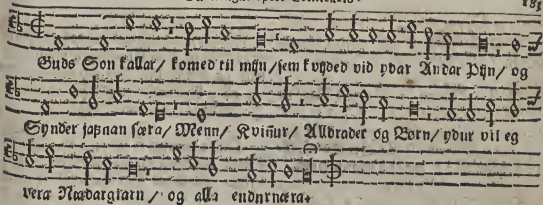 183
Guds Son kallar/ komed til mijn/ sem kvyded vid ydar Andar Pijn/ og
Synder jafnan særa/ Menn/ Kviñur/ Alldrader og Børn/ ydur vil eg
vera Nædargiarn/ og alla endurnæra.